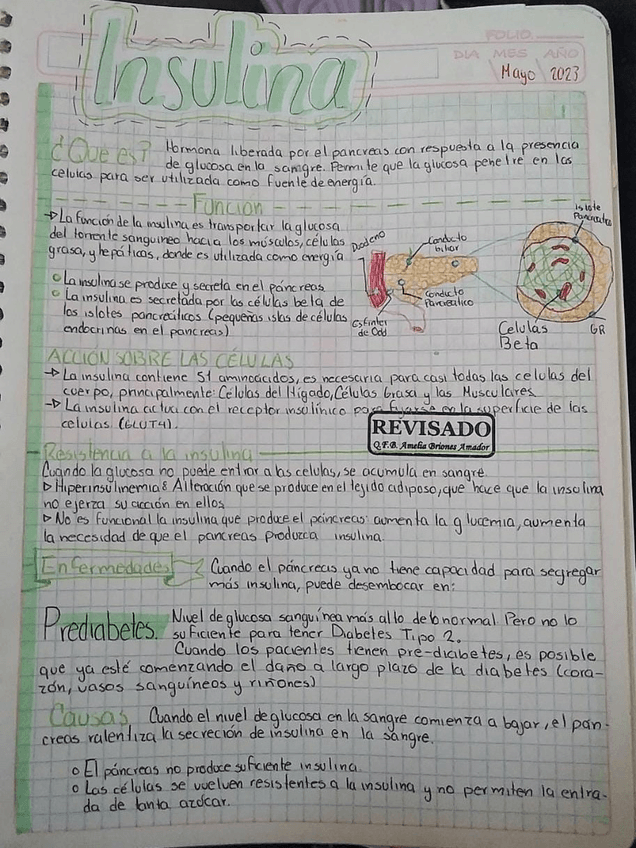 Insulina
FOLIO
DIA MES AÑO
Mayo 2023
¿Que es? Hormona liberada por el pancreas con respuesta a la presencia
de glucosa en la sangre. Permite que la glucosa penetre en las
celulas para ser utilizada como fuente de energía.
Funcion
→ La funcion de la insulina es transportar la glucosa
del torrente sanguineo hacia los músculos, células
grasa, y hepáticas, donde es utilizada como energía
o La insulina se produce y secreta en el páncreas
o La insulina es secretada por las células beta de
los islotes pancreáticos (pequeñas islas de células
endocrinas en el pancreas)
Duodeno
Conducto
biliar
Conducto
Pancreático
Esfinter
de Oddi
Islote
Pancreatico
Celulas
Beta
GR
ACCION SOBRE LAS CÉLULAS
→ La insulina contiene 51 aminoácidos, es necesaria para casi todas las celulas del
cuerpo, principalmente: Celulas del Hígado, Células Grasa y las Musculares
→ La insulina actua con el receptor insulínico para fijarse en la superficie de las
celulas (GLUT4).
REVISADO
Q.F.B. Amelia Briones Amador
Resistencia a la insulina
Cuando la glucosa no puede entrar a las celulas, se acumula en sangre.
▷ Hiperinsulinemia: Alteración que se produce en el tejido adiposo, que hace que la insulina
no ejerza su acción en ellos
▷ No es funcional la insulina que produce el páncreas: aumenta la glucemia, aumenta
la necesidad de que el pancreas produzca insulina.
Enfermedades Cuando el páncreas ya no tiene capacidad para segregar
más insulina, puede desembocar en:
Prediabetes. Nivel de glucosa sanguínea más alto de lo normal Pero no lo
suficiente para tener Diabetes Tipo 2.
Cuando los pacientes tienen pre-diabetes, es posible
que ya esté comenzando el daño a largo plazo de la diabetes (cora-
zón, vasos sanguíneos y riñones)
Causas Cuando el nivel de glucosa en la sangre comienza a bajar, el pan-
creas ralentiza la secreción de insulina en la sangre.
o El páncreas no produce suficiente insulina
o Las células se vuelven resistentes a la insulina y no permiten la entra-
da de tanta azúcar.